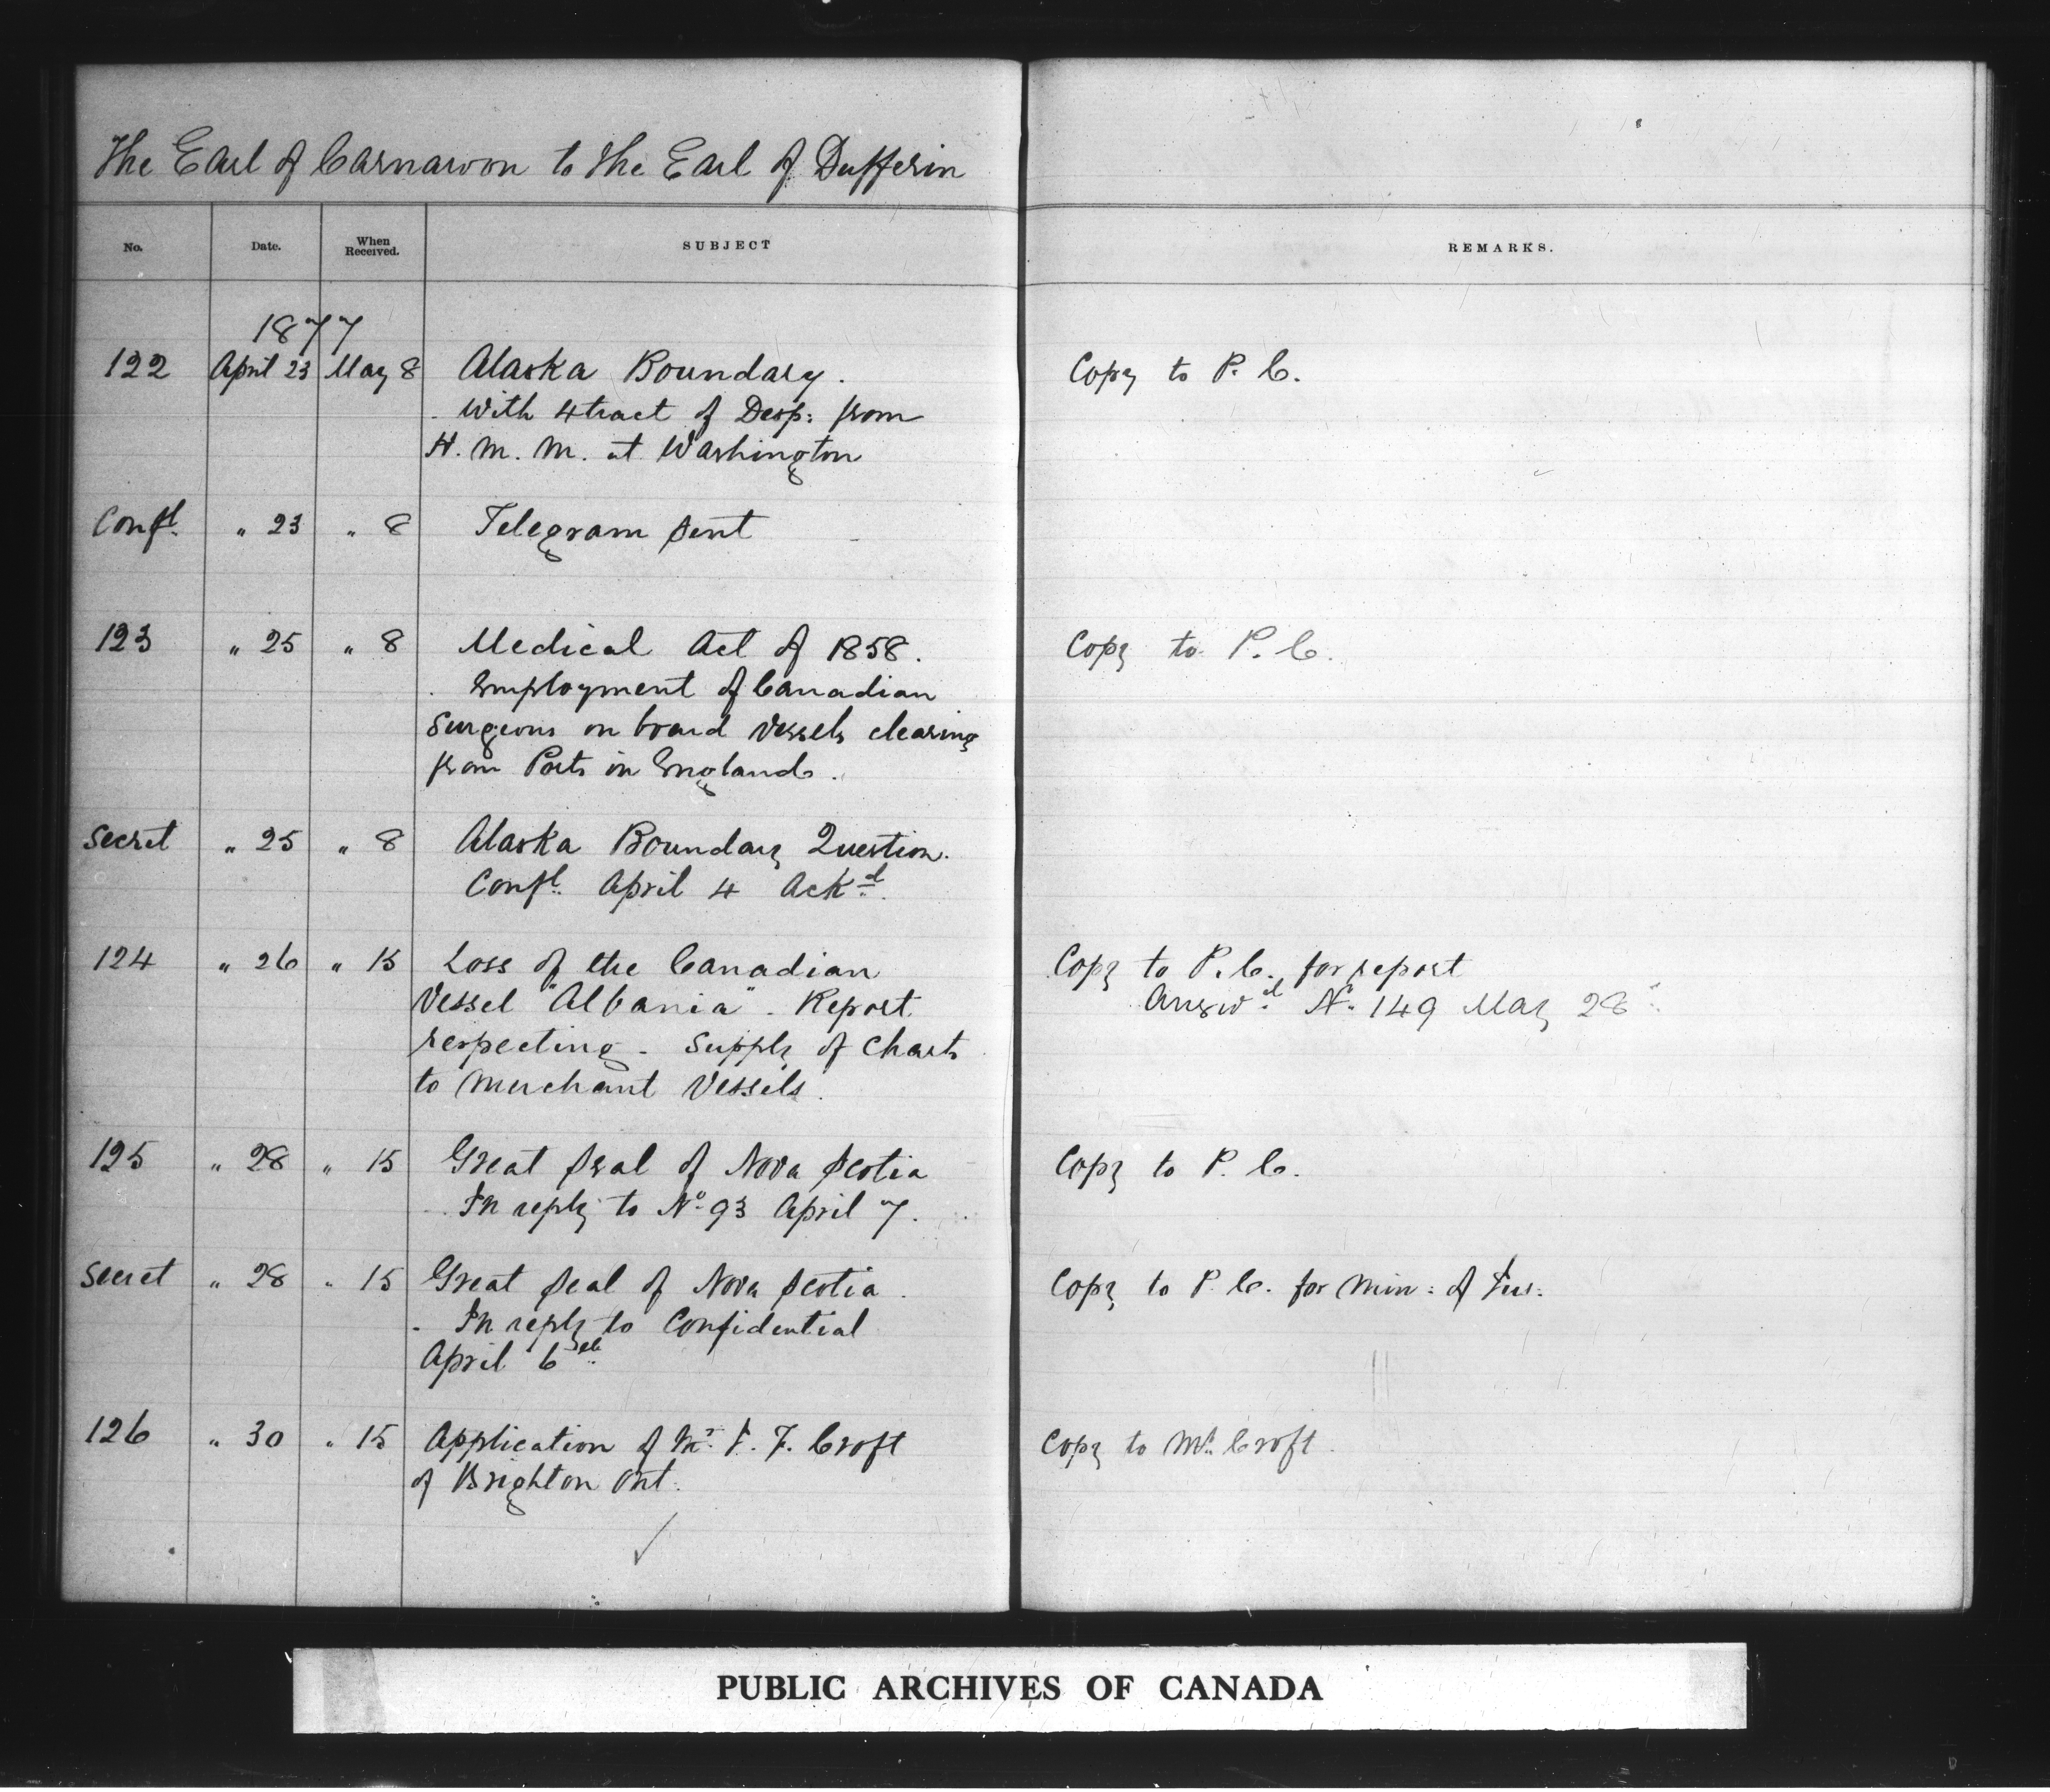 The Earl of Carnarvon to the Earl of Dufferin
No. Date. When Received. SUBJECT REMARKS.
1877
122 April 23 May 8 Alaska Boundary. Copy to P. C.
With Xtract of Desp: from
H. M. M. at Washington
Confl. " 23 " 8 Telegram sent
123 " 25 " 8 Medical Act of 1858. Copy to P. C.
Employment of Canadian
Surgeons on board Vessels clearing
from Ports in England.
Secret " 25 " 8 Alaska Boundary Question.
Confl. April 4 Ackd.
124 " 26 " 15 Loss of the Canadian Copy to P. C. for report
Vessel "Albania". Report Answd. No. 149 May 28
respecting - Supply of Charts
to Merchant Vessels.
125 " 28 " 15 Great Seal of Nova Scotia Copy to P. C.
In reply to No. 93 April 7.
Secret " 28 " 15 Great Seal of Nova Scotia. Copy to P. C. for Min: of Jus:
- In reply to Confidential
April 6
126 " 30 " 15 Application of Mr. F. Croft Copy to Mr. Croft.
of Brighton Ont.
PUBLIC ARCHIVES OF CANADA